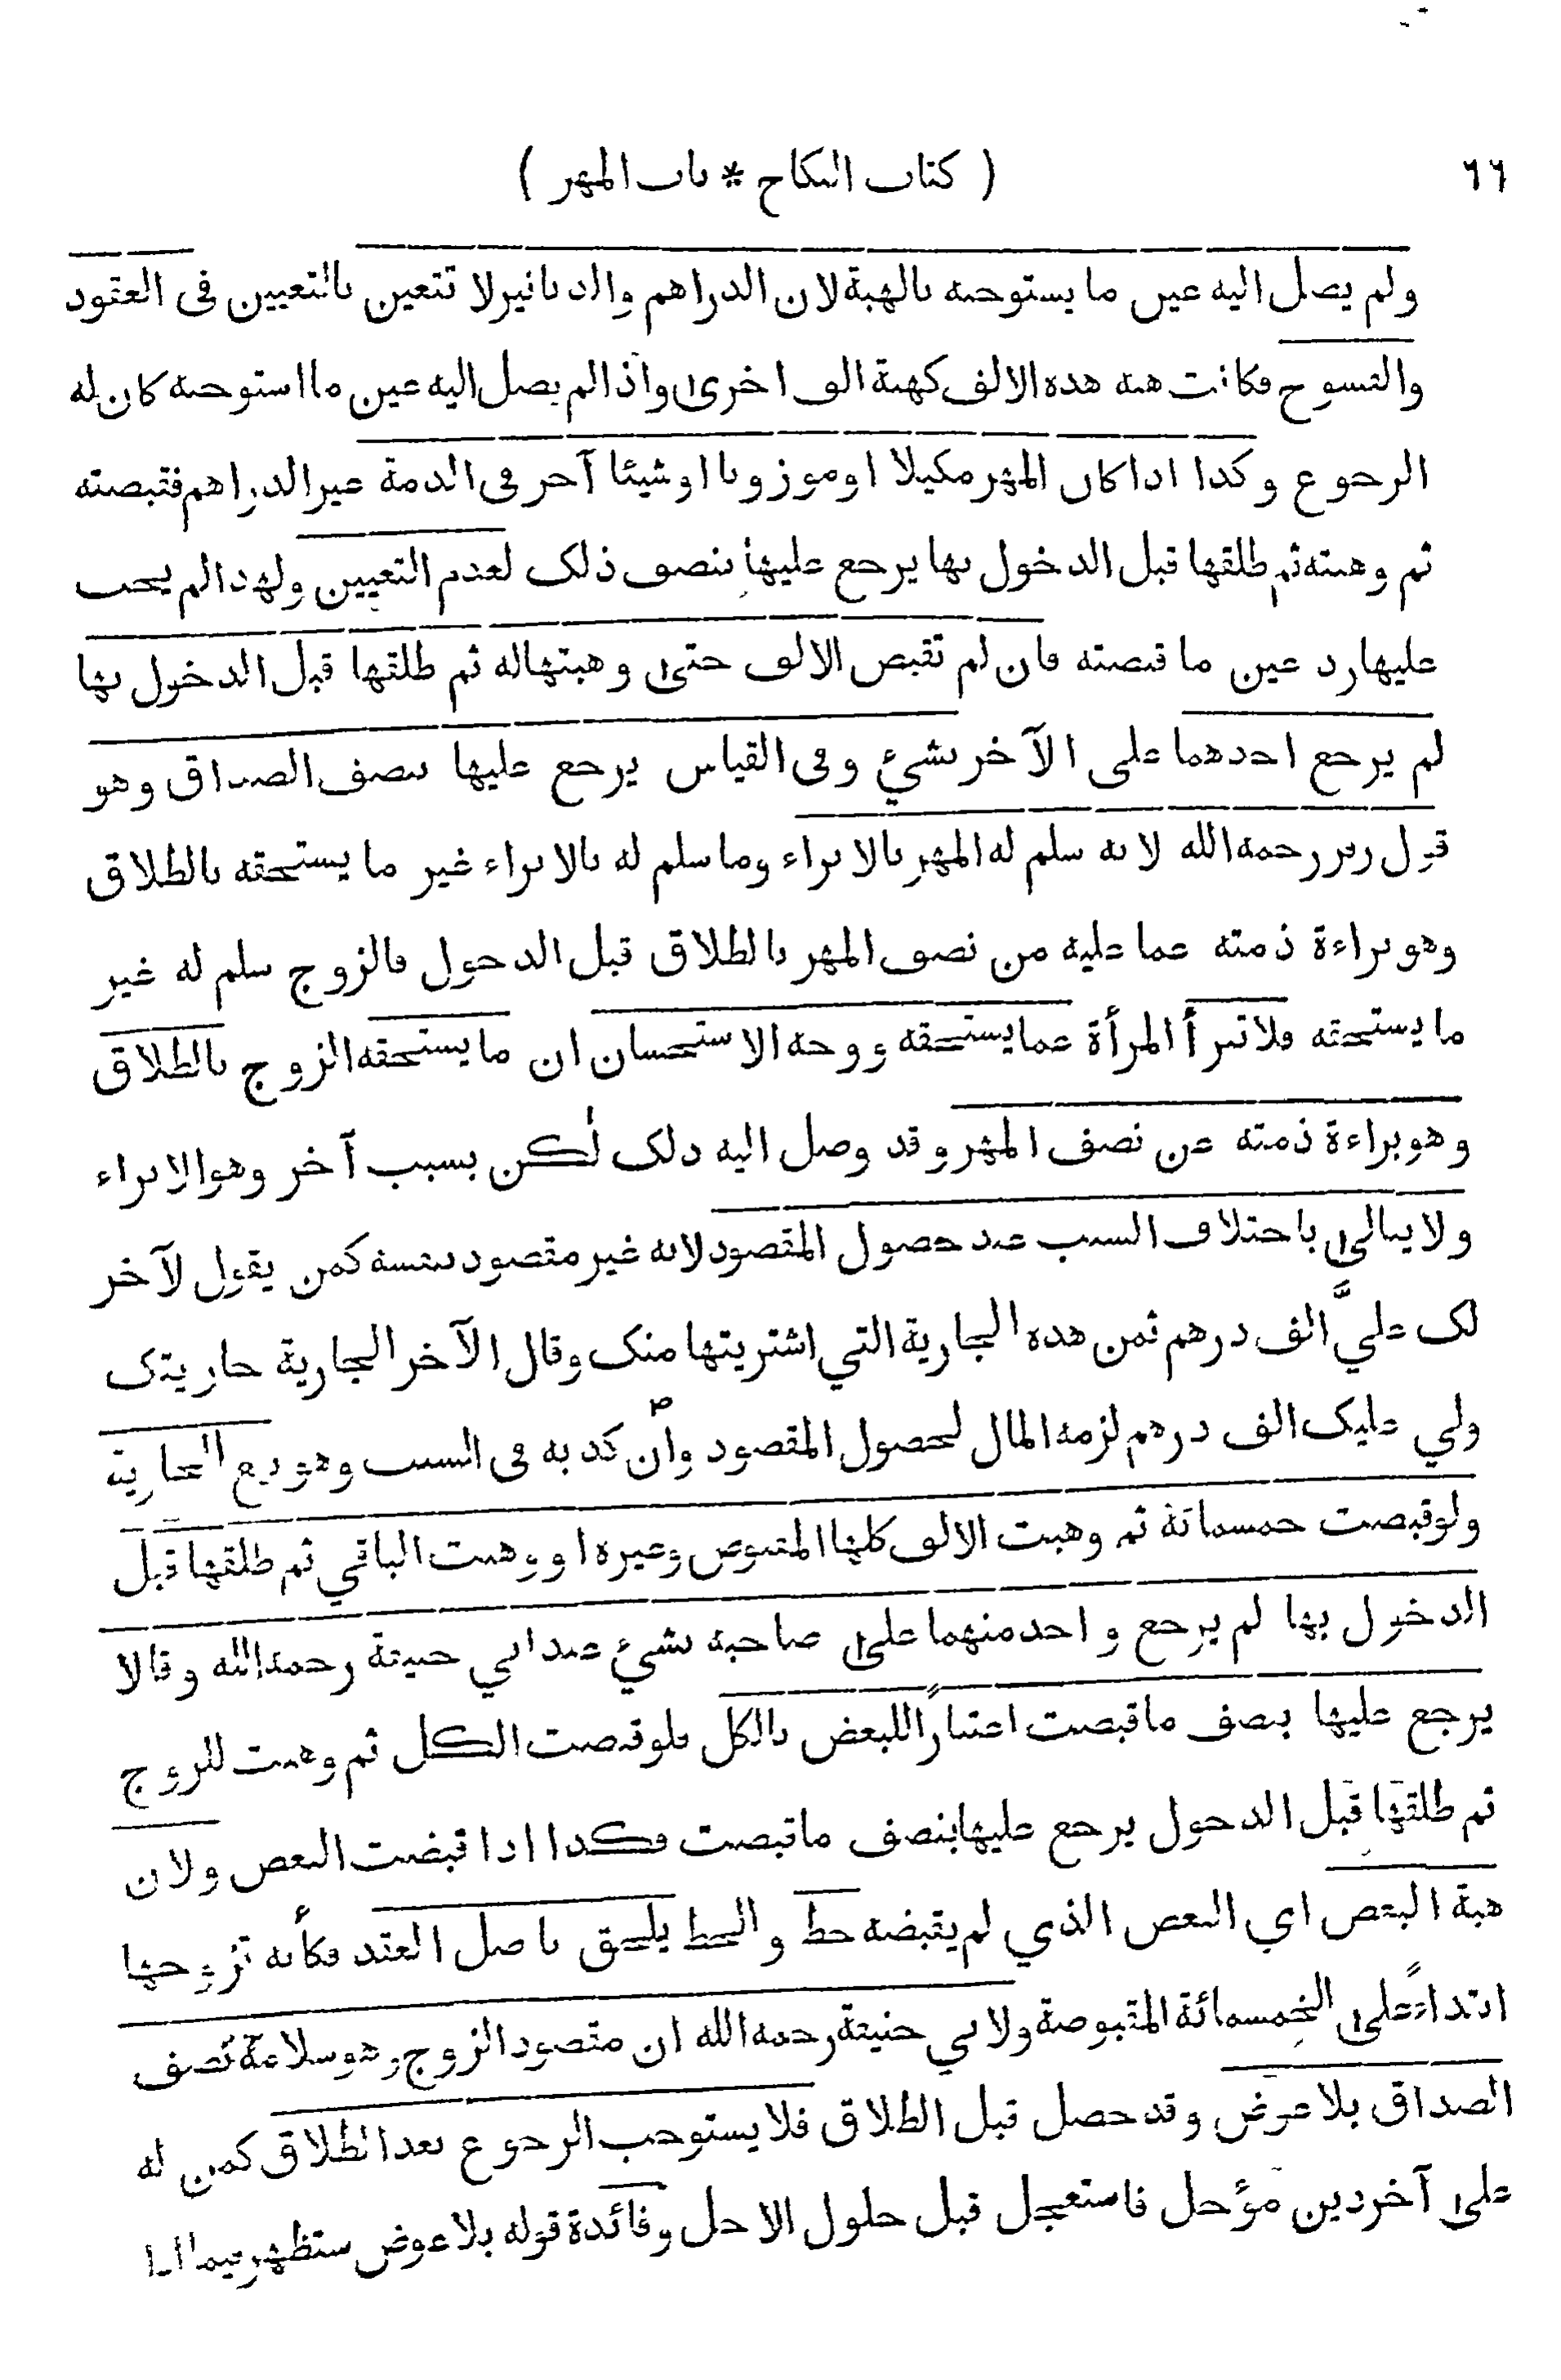 ٦٦
( كتاب النكاح * باب المهر )
ولم يصل اليه عين ما يستوجبه بالهبة لان الدراهم والدنانير لا تتعين بالتعيين في العقود
والفسوخ فكانت هبة هذه الالف كهبة الف اخرى واذا لم يصل اليه عين ما استوجبه كان له
الرجوع وكذا اذا كان المهر مكيلا او موزونا او شيئا آخر في الذمة غير الدراهم فقبضته
ثم وهبته ثم طلقها قبل الدخول بها يرجع عليها بنصف ذلك لعدم التعيين ولهذا لم يجب
عليها رد عين ما قبضته فان لم تقبض الالف حتى وهبتها له ثم طلقها قبل الدخول بها
لم يرجع احدهما على الآخر بشيء وفي القياس يرجع عليها بنصف الصداق وهو
قول زفر رحمه الله لانه سلم له المهر بالابراء وما سلم له بالابراء غير ما يستحقه بالطلاق
وهو براءة ذمته عما عليه من نصف المهر بالطلاق قبل الدخول فالزوج سلم له غير
ما يستحقه فلا تبرأ المرأة عما يستحقه ووجه الاستحسان ان ما يستحقه الزوج بالطلاق
وهو براءة ذمته عن نصف المهر وقد وصل اليه ذلك لكن بسبب آخر وهو الابراء
ولا يبالى باختلاف السبب عند حصول المقصود لانه غير مقصود بنفسه كمن يقول لآخر
لك عليّ الف درهم ثمن هذه الجارية التي اشتريتها منك وقال الآخر الجارية جاريتك
ولي عليك الف درهم لزمه المال لحصول المقصود وان كذبه في السبب وهو بيع الجارية
ولو قبضت خمسمائة ثم وهبت الالف كلها المقبوض وغيره او وهبت الباقي ثم طلقها قبل
الدخول بها لم يرجع واحد منهما على صاحبه بشيء عند ابي حنيفة رحمه الله وقالا
يرجع عليها بنصف ما قبضت اعتبارًا للبعض بالكل فلو قبضت الكل ثم وهبت للزوج
ثم طلقها قبل الدخول يرجع عليها بنصف ما قبضت فكذا اذا قبضت البعض ولان
هبة البعض اي البعض الذي لم يقبضه حط والحط يلحق باصل العقد فكأنه تزوجها
ابتداءً على الخمسمائة المقبوضة ولابي حنيفة رحمه الله ان مقصود الزوج وهو سلامة نصف
الصداق بلا عوض وقد حصل قبل الطلاق فلا يستوجب الرجوع بعد الطلاق كمن له
على آخر دين مؤجل فاستعجل قبل حلول الاجل وفائدة قوله بلا عوض ستظهر فيما اذا